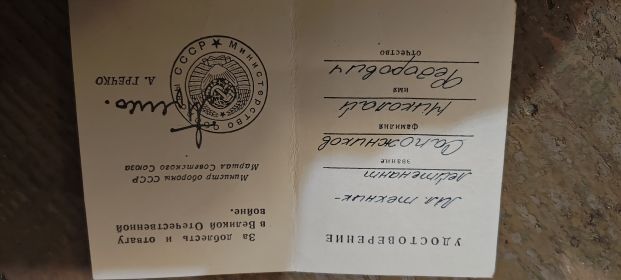 УДОСТОВЕРЕНИЕ
Мл техник-
лейтенант
звание
Сапожников
фамилия
Николай
имя
Федорович
отчество
За доблесть и отвагу
в Великой Отечественной
войне.
Министр обороны СССР
Маршал Советского Союза
А. ГРЕЧКО
Министерство обороны СССР